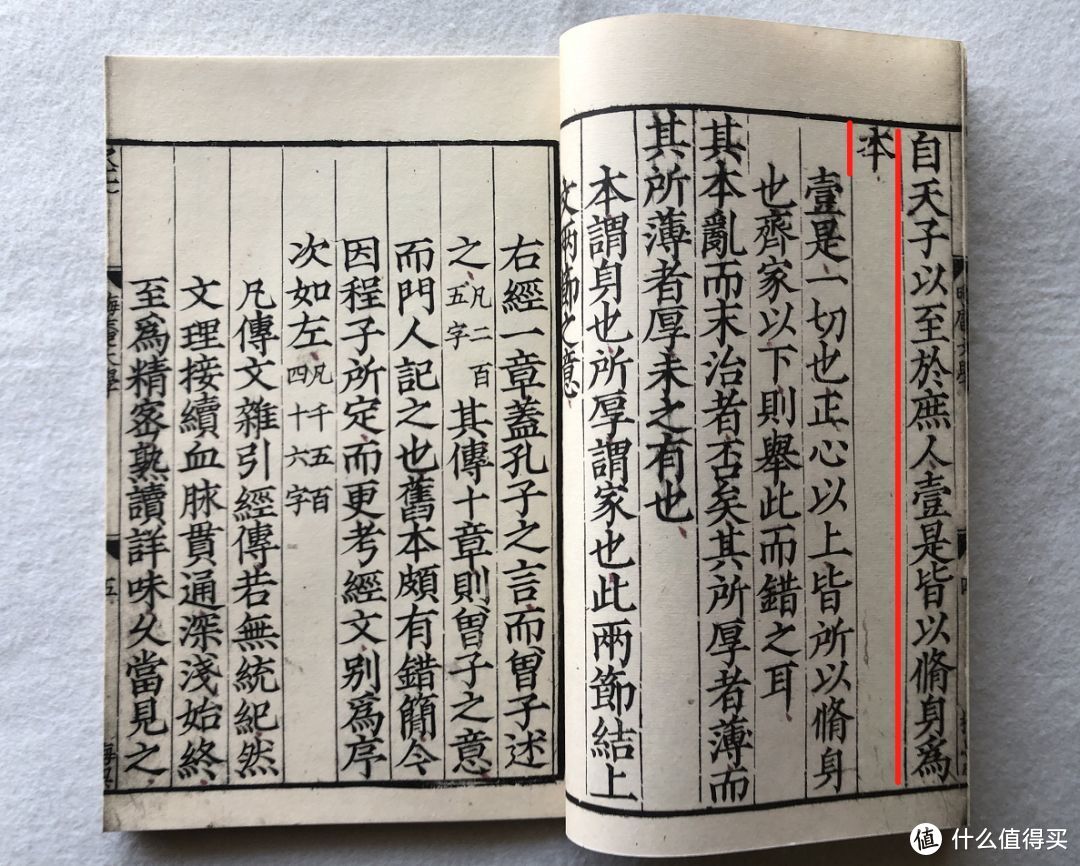 自天子以至於庶人壹是皆以脩身爲
本
壹是一切也正心以上皆所以脩身
也齊家以下則舉此而錯之耳
其本亂而末治者否矣其所厚者薄而
其所薄者厚未之有也
本謂身也所厚謂家也此兩節結上
文兩節之意
右經一章蓋孔子之言而曾子述
之凡二百五字其傳十章則曾子之意
而門人記之也舊本頗有錯簡今
因程子所定而更考經文别爲序
次如左凡千五百四十六字
凡傳文雜引經傳若無統紀然
文理接續血脉貫通深淺始終
至爲精密熟讀詳味久當見之
值 什么值得买